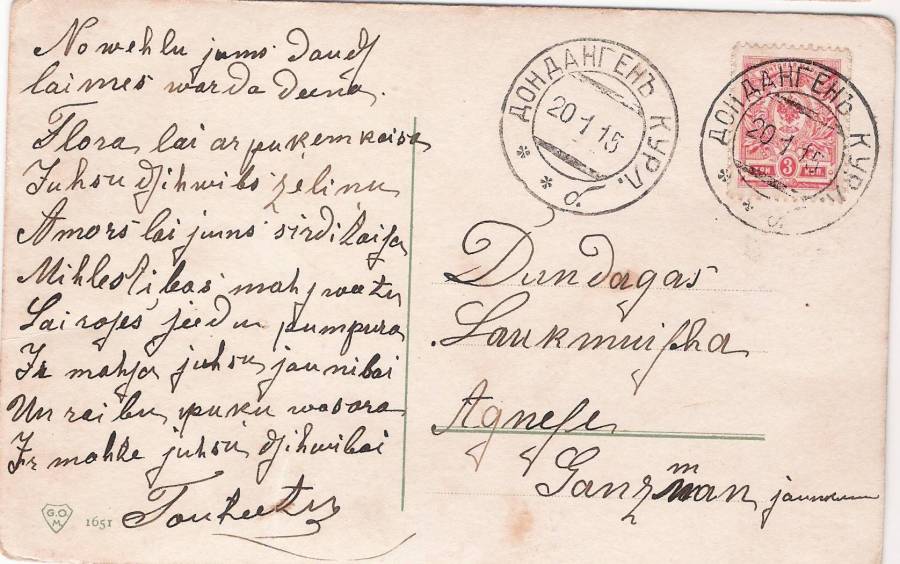 Nowehlu jums daudz
laimes warda deena.
Flora lai ar puķem kaisa
Juhsu dzihwibs zelinu
Amors lai jums sirdi
Mihlestibas
Lai rozes zeedu pumpura
Ir mahja juhsu jaunibai
Un raibu puķu wasara
Ir mahte juhsu dzihwibai
G.O.M.
1651
ДОНДАНГЕНЪ КУРЛ.
20 1 15
* б *
ДОНДАНГЕНЪ КУРЛ.
20 1 15
* б *
3
ТРИ КОП.
Dundagas
Laukmuischa
Agnese
Ganzman